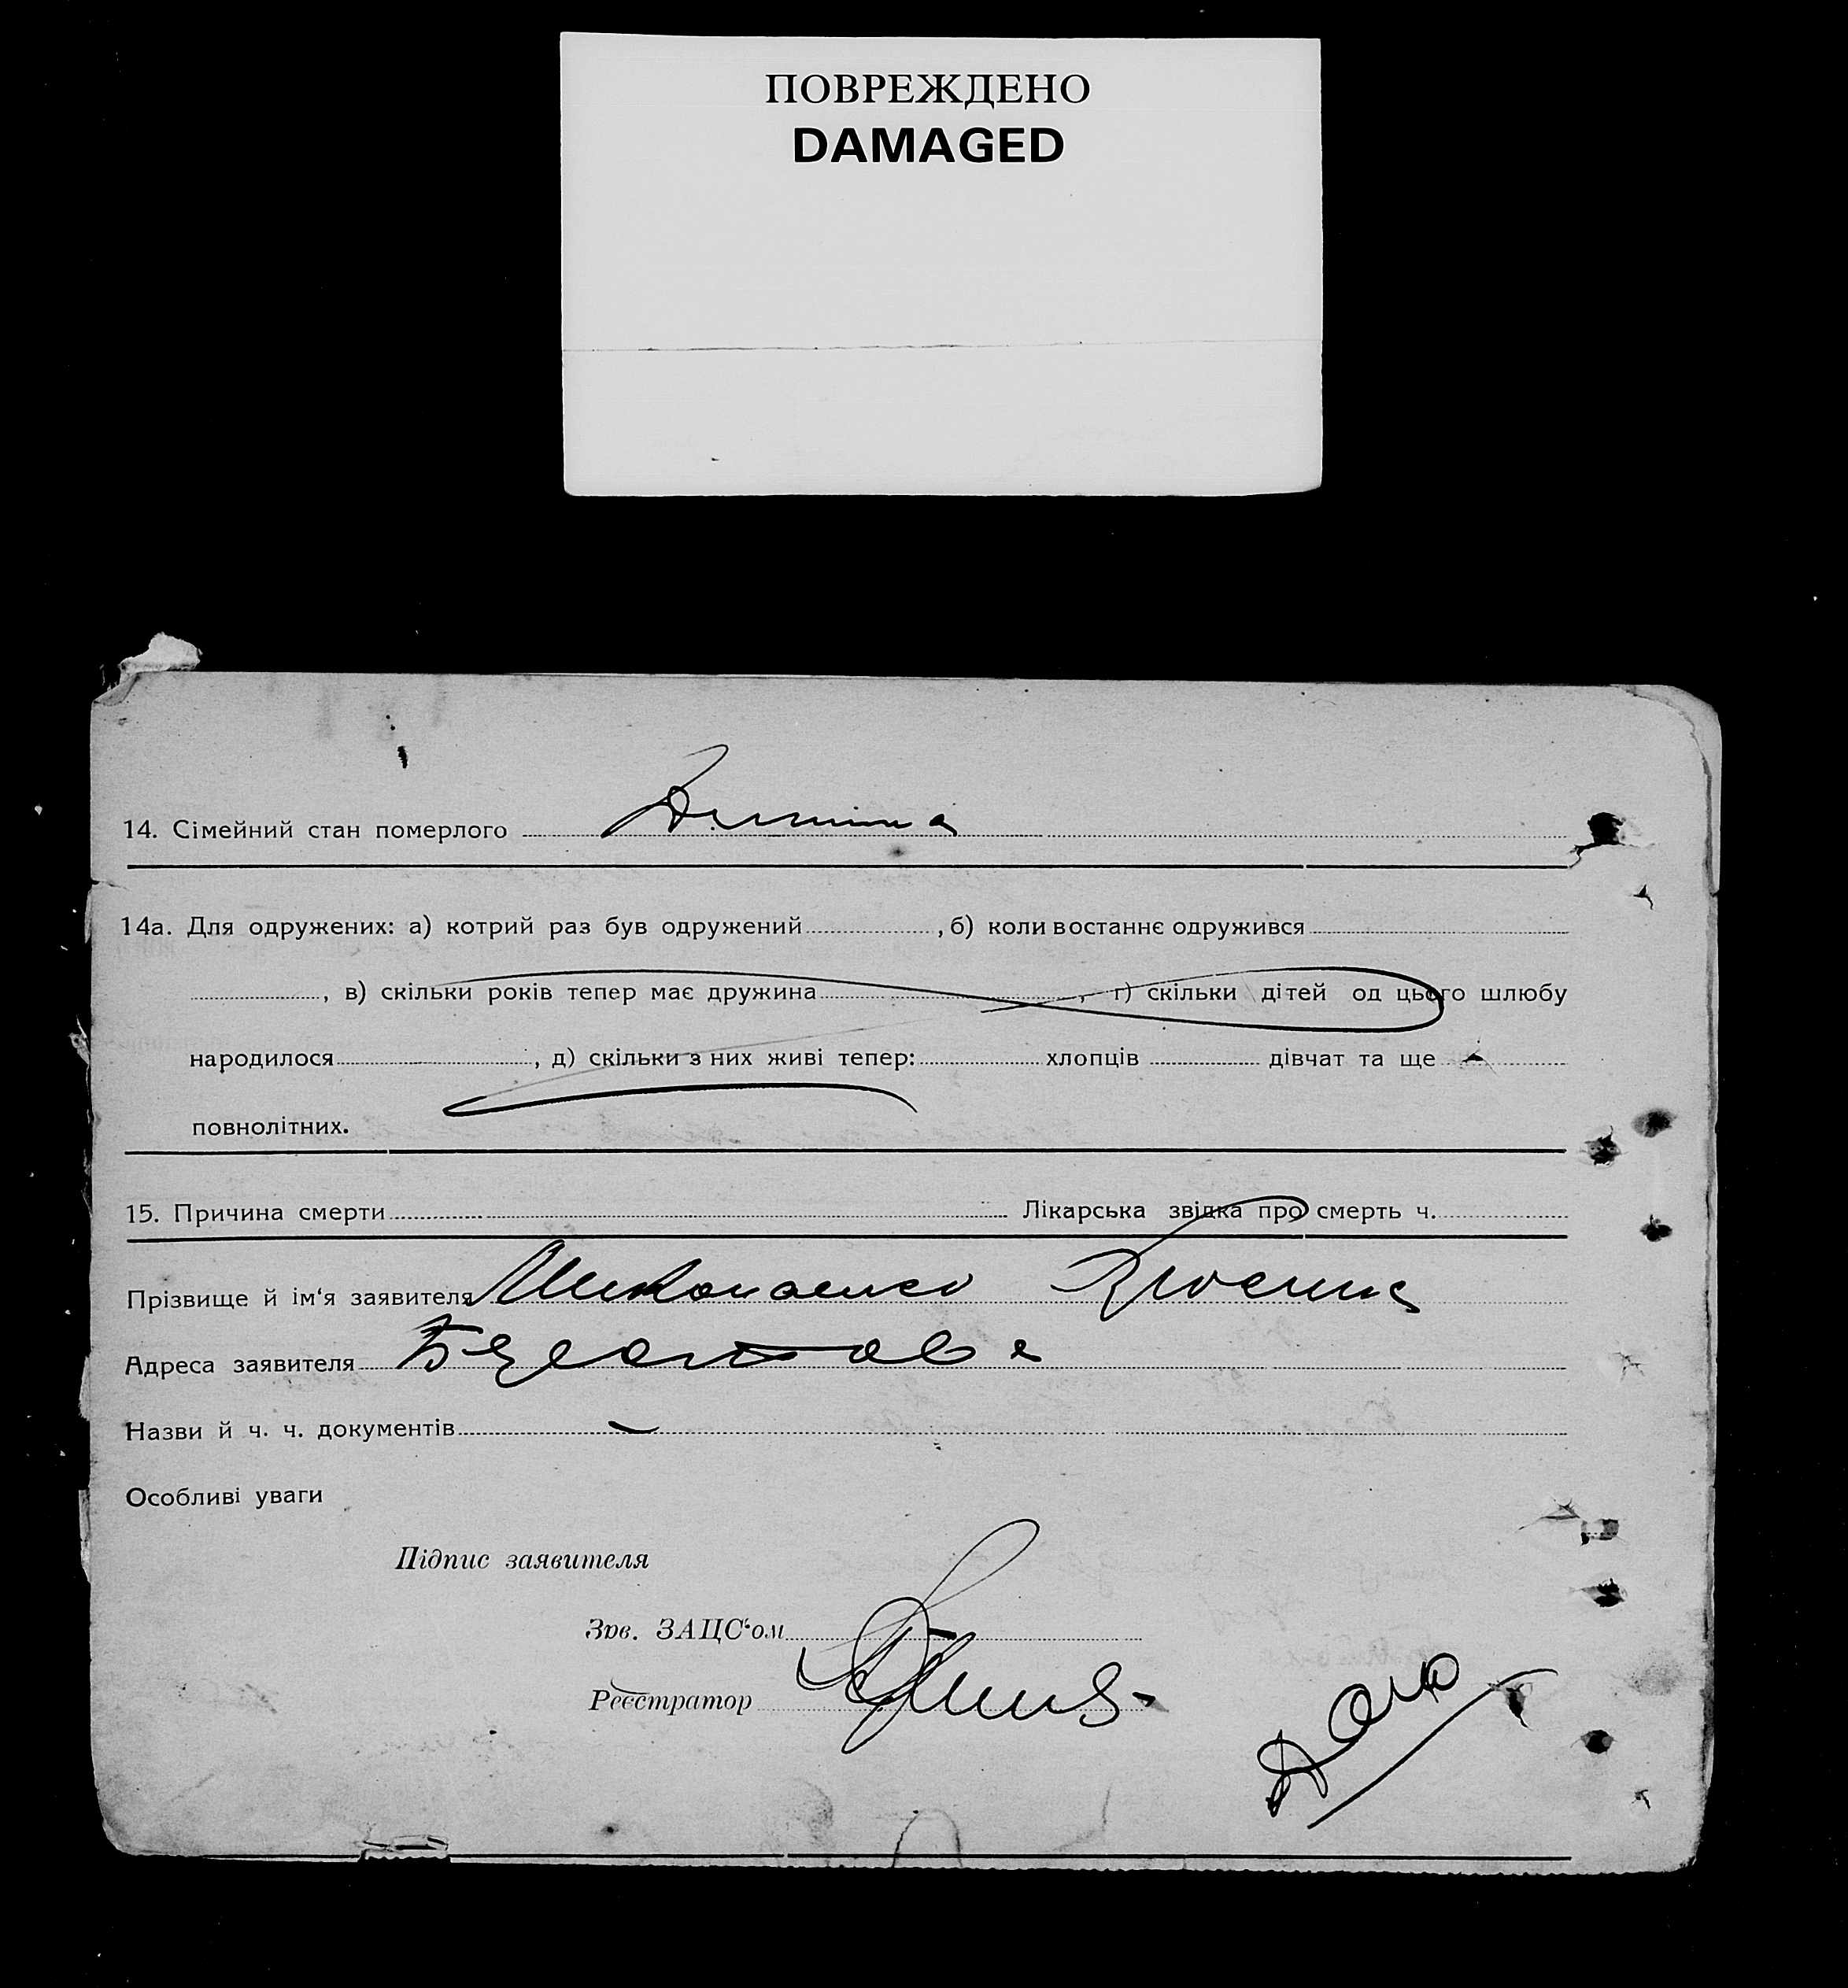 ПОВРЕЖДЕНО
DAMAGED
14. Сімейний стан померлого Дитина
14а. Для одружених: а) котрий раз був одружений , б) коли востаннє одружився
, в) скільки років тепер має дружина , г) скільки дітей од цього шлюбу
народилося , д) скільки з них живі тепер: хлопців дівчат та ще
повнолітних.
15. Причина смерти Лікарська звідка про смерть ч.
Прізвище й ім'я заявителя Миколаенко
Адреса заявителя
Назви й ч. ч. документів —
Особливі уваги
Підпис заявителя
Зав. ЗАЦС'ом
Реєстратор